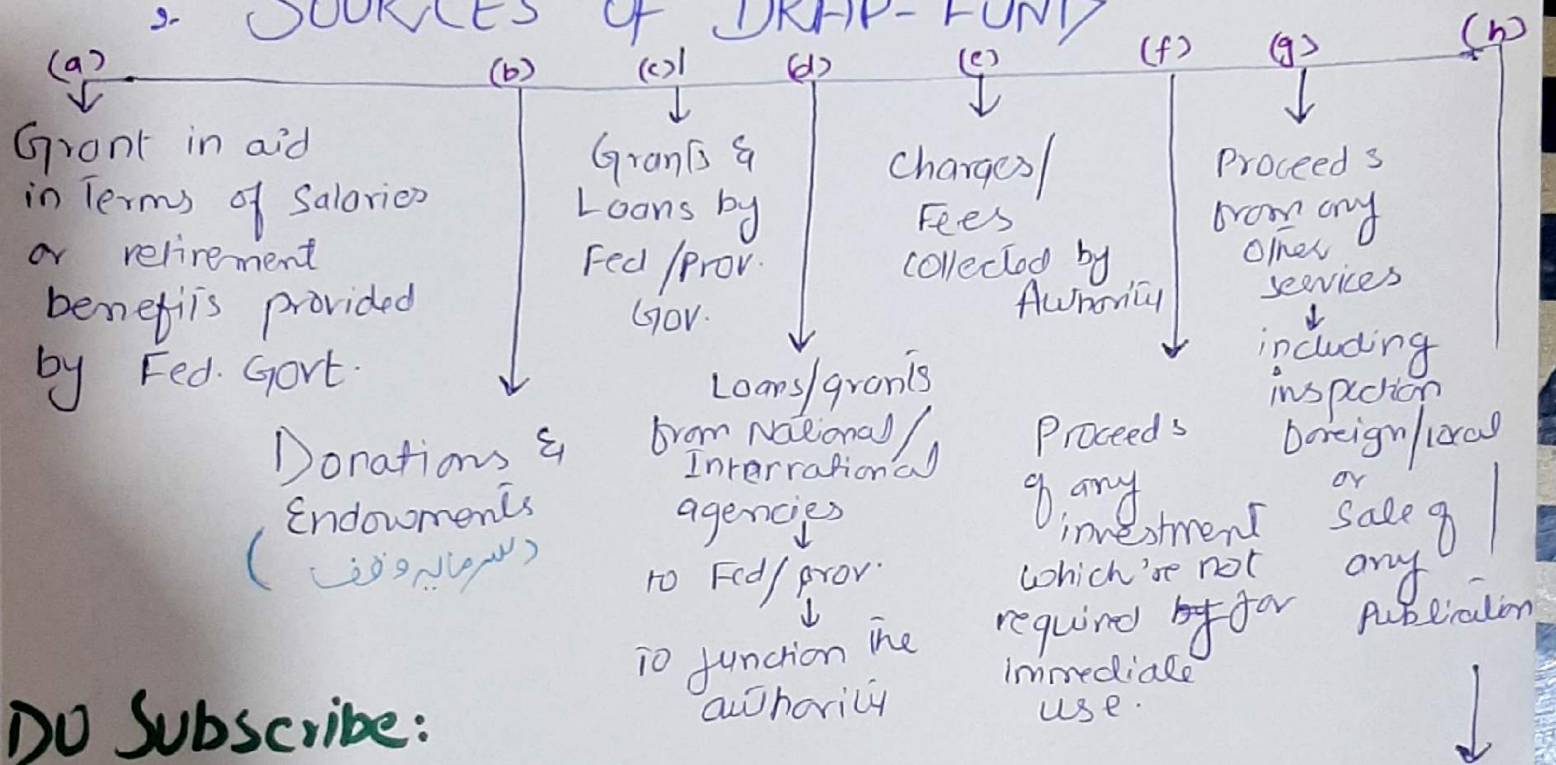 2- SOURCES OF DRAP-FUND
(a)
(b)
(c)
(d)
(e)
(f)
(g)
(h)
Grant in aid
in Terms of Salaries
or retirement
benefits provided
by Fed. Govt.
Donations &
Endowments
(سرمایہ وقف)
Grants &
Loans by
Fed/Prov.
Gov.
Loans/grants
from National/
International
agencies
to Fed/prov.
To function the
authority
Charges/
Fees
collected by
Authority
Proceeds
of any
investment
which're not
required by for
immediate
use.
Proceeds
from any
other
services
including
inspection
foreign/local
or
Sale of
any
Publication
DO Subscribe: